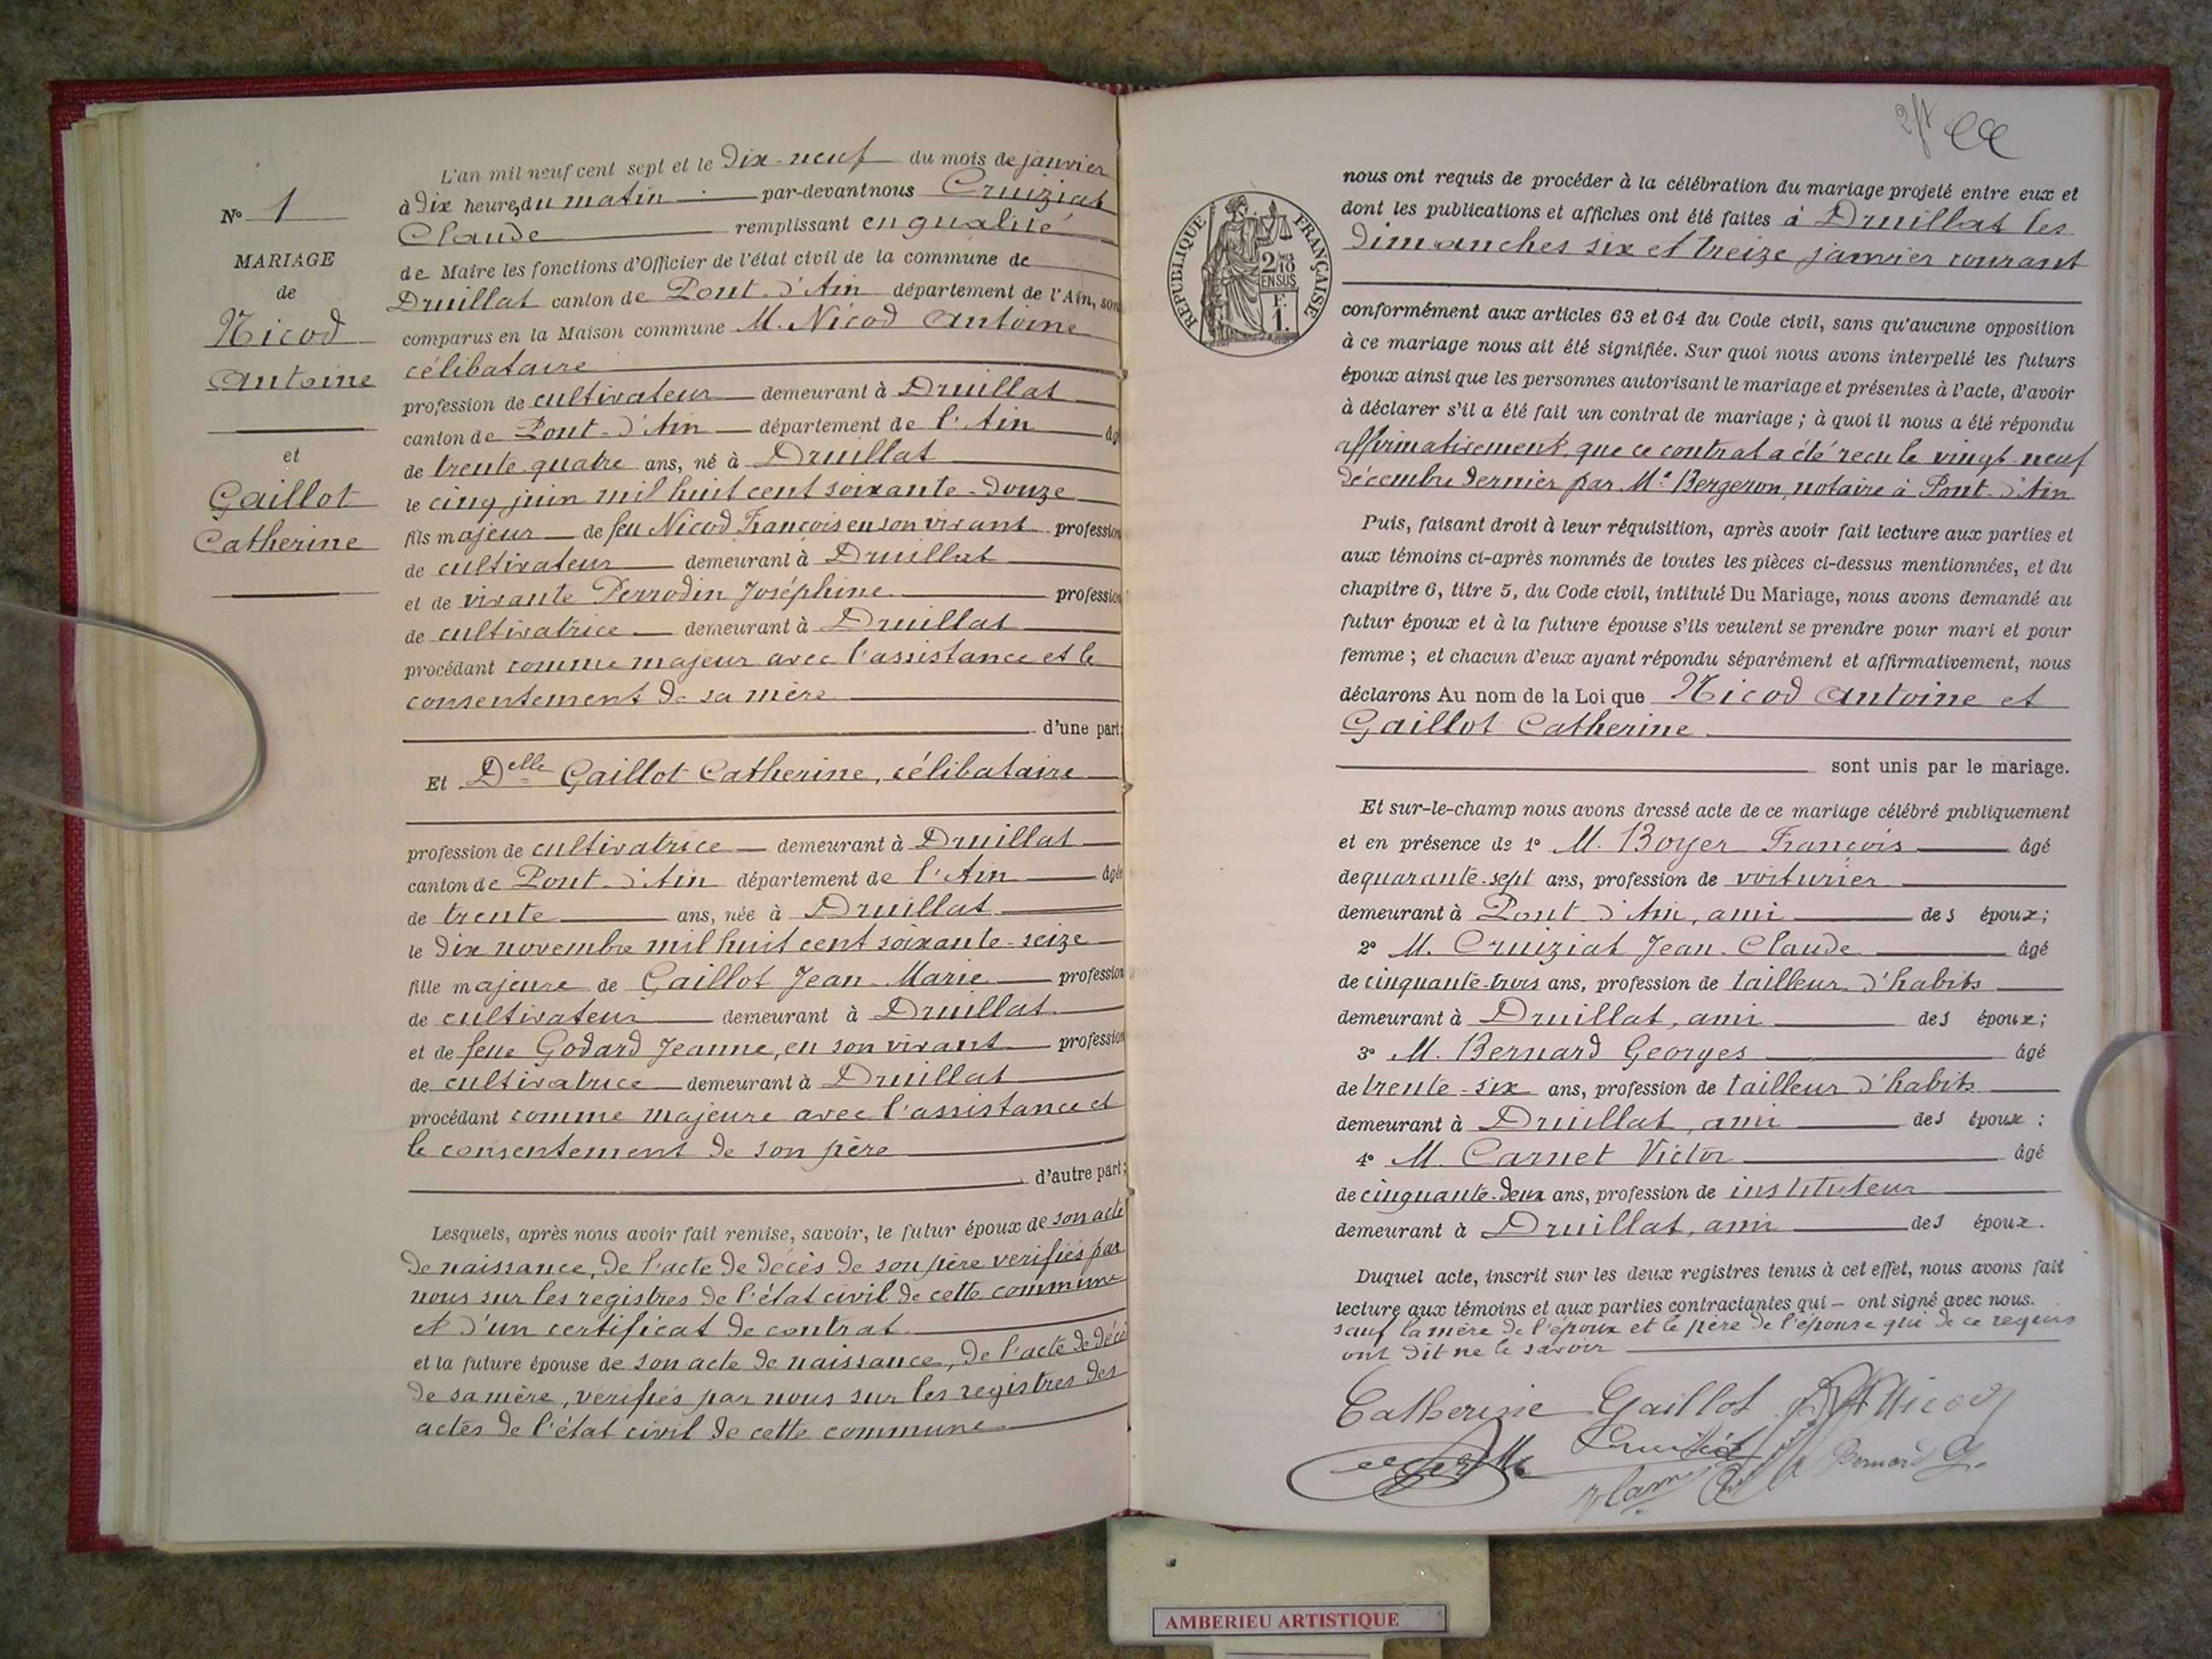 N° 1
MARIAGE
de
Nicod
Antoine
et
Gaillot
Catherine
L'an mil neuf cent sept et le dix-neuf du mois de janvier
à dix heures du matin par-devant nous Cruiziat
Claude remplissant en qualité
de Maire les fonctions d'Officier de l'état civil de la commune de
Druillat canton de Pont-d'Ain département de l'Ain, son
comparus en la Maison commune M. Nicod Antoine
célibataire
profession de cultivateur demeurant à Druillat
canton de Pont-d'Ain département de l'Ain âg
de trente-quatre ans, né à Druillat
le cinq juin mil huit cent soixante-douze
fils majeur de feu Nicod François en son vivant profession
de cultivateur demeurant à Druillat
et de vivante Perrodin Joséphine profession
de cultivatrice demeurant à Druillat
procédant comme majeur avec l'assistance et le
consentement de sa mère
d'une part;
Et Delle Gaillot Catherine, célibataire
profession de cultivatrice demeurant à Druillat
canton de Pont-d'Ain département de l'Ain âgée
de trente ans, née à Druillat
le dix novembre mil huit cent soixante-seize
fille majeure de Gaillot Jean-Marie profession
de cultivateur demeurant à Druillat
et de feue Godard Jeanne, en son vivant profession
de cultivatrice demeurant à Druillat
procédant comme majeure avec l'assistance et
le consentement de son père
d'autre part;
Lesquels, après nous avoir fait remise, savoir, le futur époux de son acte
de naissance, de l'acte de décès de son père verifiés par
nous sur les registres de l'état civil de cette commune
et d'un certificat de contrat
et la future épouse de son acte de naissance, de l'acte de décè
de sa mère, verifiés par nous sur les registres des
actes de l'état civil de cette commune
RÉPUBLIQUE FRANÇAISE
2/10
EN SUS
F.
1.
nous ont requis de procéder à la célébration du mariage projeté entre eux et
dont les publications et affiches ont été faites à Druillat les
dimanches six et treize janvier courant
conformément aux articles 63 et 64 du Code civil, sans qu'aucune opposition
à ce mariage nous ait été signifiée. Sur quoi nous avons interpellé les futurs
époux ainsi que les personnes autorisant le mariage et présentes à l'acte, d'avoir
à déclarer s'il a été fait un contrat de mariage ; à quoi il nous a été répondu
affirmativement, que ce contrat a été reçu le vingt-neuf
décembre dernier par Me Bergeron, notaire à Pont-d'Ain
Puis, faisant droit à leur réquisition, après avoir fait lecture aux parties et
aux témoins ci-après nommés de toutes les pièces ci-dessus mentionnées, et du
chapitre 6, titre 5, du Code civil, intitulé Du Mariage, nous avons demandé au
futur époux et à la future épouse s'ils veulent se prendre pour mari et pour
femme ; et chacun d'eux ayant répondu séparément et affirmativement, nous
déclarons Au nom de la Loi que Nicod Antoine et
Gaillot Catherine
sont unis par le mariage.
Et sur-le-champ nous avons dressé acte de ce mariage célébré publiquement
et en présence de 1° M. Boyer François âgé
de quarante-sept ans, profession de voiturier
demeurant à Pont d'Ain, ami des époux;
2° M. Cruiziat Jean-Claude âgé
de cinquante-trois ans, profession de tailleur d'habits
demeurant à Druillat, ami des époux;
3° M. Bernard Georges âgé
de trente-six ans, profession de tailleur d'habits
demeurant à Druillat, ami des époux ;
4° M. Carnet Victor âgé
de cinquante-deux ans, profession de instituteur
demeurant à Druillat, ami des époux.
Duquel acte, inscrit sur les deux registres tenus à cet effet, nous avons fait
lecture aux témoins et aux parties contractantes qui ont signé avec nous.
sauf la mère de l'époux et le père de l'épouse qui de ce requis
ont dit ne le savoir
Catherine Gaillot Nicod
Cruiziat
Bernard G.
AMBERIEU ARTISTIQUE